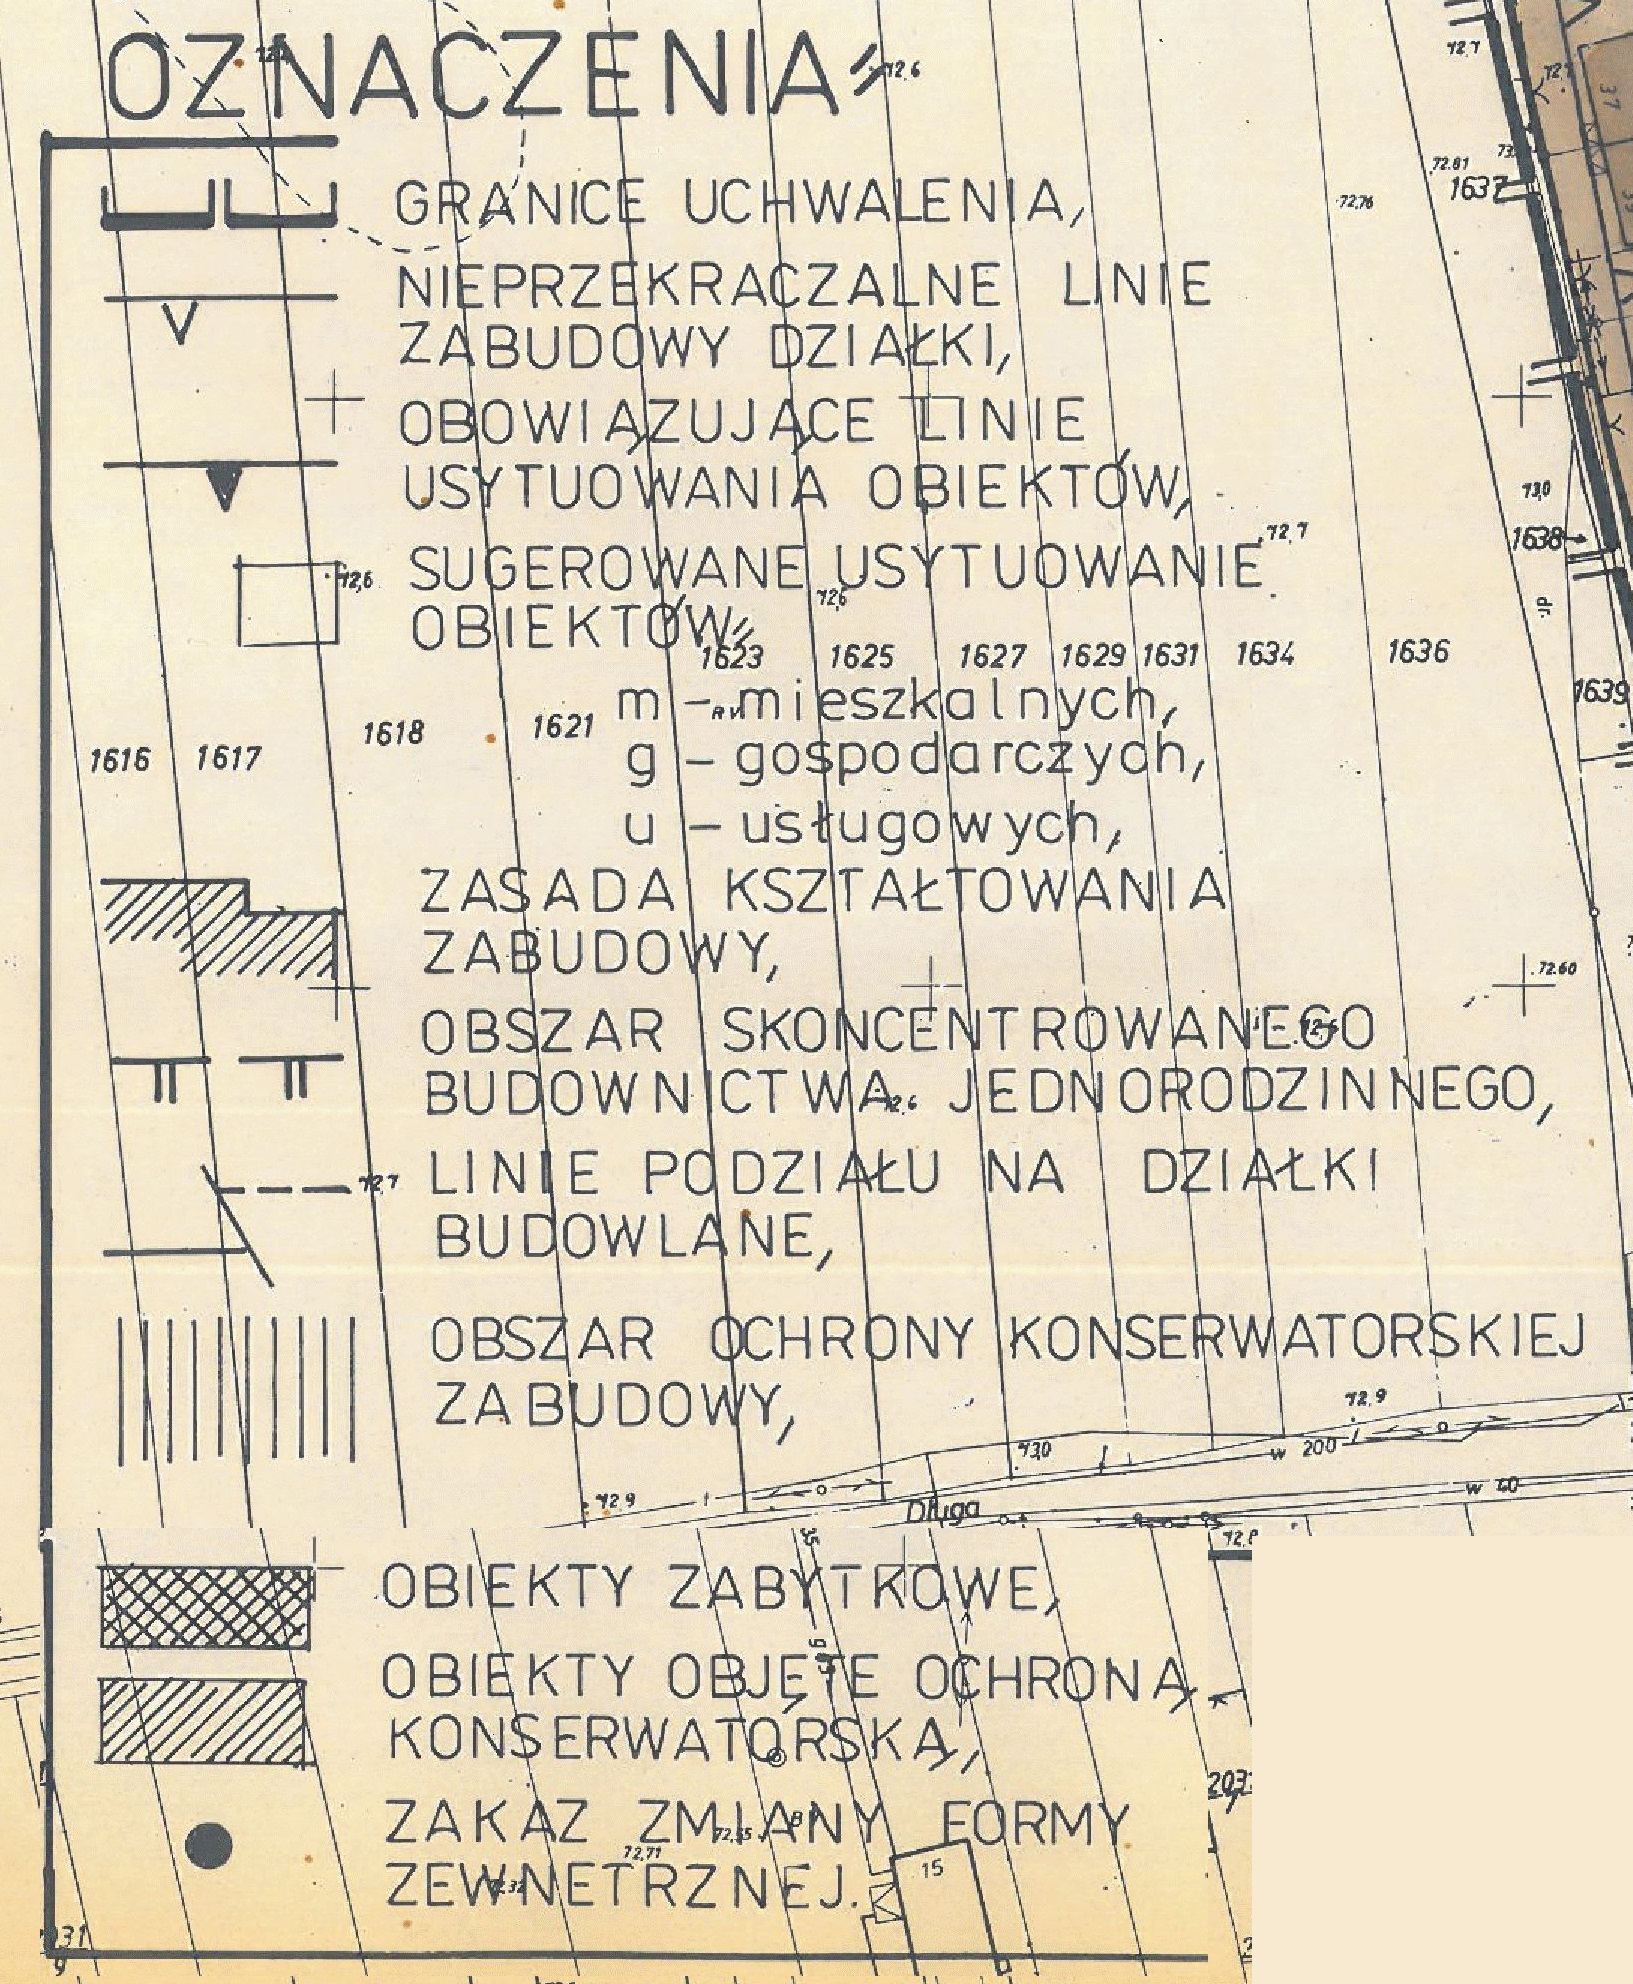 OZNACZENIA
72,6
72,7
GRANICE UCHWALENIA,
72.81
1637
72,76
NIEPRZEKRACZALNE LINIE
ZABUDOWY DZIAŁKI,
OBOWIĄZUJĄCE LINIE
USYTUOWANIA OBIEKTÓW,
73,0
1638
72,7
SUGEROWANE USYTUOWANIE
72,6
72,6
OBIEKTÓW
1623 1625 1627 1629 1631 1634 1636
1639
m - mieszkalnych,
1616 1617 1618 1621
g - gospodarczych,
u - usługowych,
ZASADA KSZTAŁTOWANIA
ZABUDOWY,
72.60
OBSZAR SKONCENTROWANEGO
BUDOWNICTWA JEDNORODZINNEGO,
LINIE PODZIAŁU NA DZIAŁKI
72,7
BUDOWLANE,
OBSZAR OCHRONY KONSERWATORSKIEJ
ZABUDOWY,
72.9
73,0
w 200
w 40
72.9
Długa
OBIEKTY ZABYTKOWE,
OBIEKTY OBJĘTE OCHRONĄ
KONSERWATORSKĄ,
ZAKAZ ZMIANY FORMY
72,71
15
ZEWNETRZNEJ.